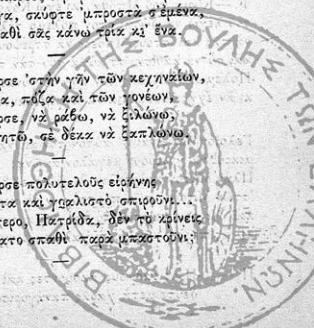 γα, σκύφτε ’μπροστὰ σ’ἐμένα,
αθὶ σᾶς κάνω τρία κι’ ἕνα.
ρσε ’στὴν γῆν τῶν κεχηναίων,
α, πόζα καὶ τῶν γονέων,
ρσε, νὰ ῥάβω, νὰ ξιλώνω,
ητῶ, σὲ δέκα νὰ ξαπλώνω.
ρσε πολυτελοῦς εἰρήνης
τα καὶ γυαλιστὸ σπιροῦνι...
τερο, Πατρίδα, δὲν τὸ κρίνεις
ατο σπαθὶ παρὰ μπαστοῦνι;
ΒΙΒΛΙΟΘΗΚΗ ΤΗΣ ΒΟΥΛΗΣ ΤΩΝ ΕΛΛΗΝΩΝ